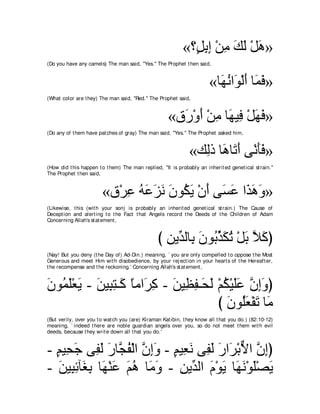 «هَلْ لَكَ مِنْ إِبِلٍ؟»
(Do you have any camels) The man said, "Yes." The Prophet then said,
«فَمَا أَلْوَانُهَا»
(What color are they) The man said, "Red." The Prophet said,
«فَهَلْ فِيهَا مِنْ أَوْرَقَ»
(Do any of them have patches of gray) The man said, "Yes." The Prophet asked him,
«فَأَنْى أَتَاهَا ذلِكَ»
(How did this happen to them) The man replied, "It is probably an inherited genetical strain." The Prophet then said,
«وَهَذَا عَسَى أَنْ يَكُونَ نَزَعَهُ عِرْقٌ»
(Likewise, this (with your son) is probably an inherited genetical strain.) The Cause of Deception and alerting to the Fact that Angels record the Deeds of the Children of Adam Concerning Allah's statement,
(كَلاَّ بَلْ تُكَذِّبُونَ بِالدِّينِ )
(Nay! But you deny (the Day of) Ad-Din.) meaning, `you are only compelled to oppose the Most Generous and meet Him with disobedience, by your rejection in your hearts of the Hereafter, the recompense and the reckoning.' Concerning Allah's statement,
(وَإِنَّ عَلَيْكُمْ لَحَـفِظِينَ - كِرَاماً كَـتِبِينَ - يَعْلَمُونَ مَا تَفْعَلُونَ )
(But verily, over you to watch you (are) Kiraman Katibin, they know all that you do.) (82:10-12) meaning, `indeed there are noble guardian angels over you, so do not meet them with evil deeds, because they write down all that you do.'
(إِنَّ الاٌّبْرَارَ لَفِى نَعِيمٍ - وَإِنَّ الْفُجَّارَ لَفِى جَحِيمٍ - يَصْلَوْنَهَا يَوْمَ الدِّينِ - وَمَا هُمْ عَنْهَا بِغَآئِبِينَ -